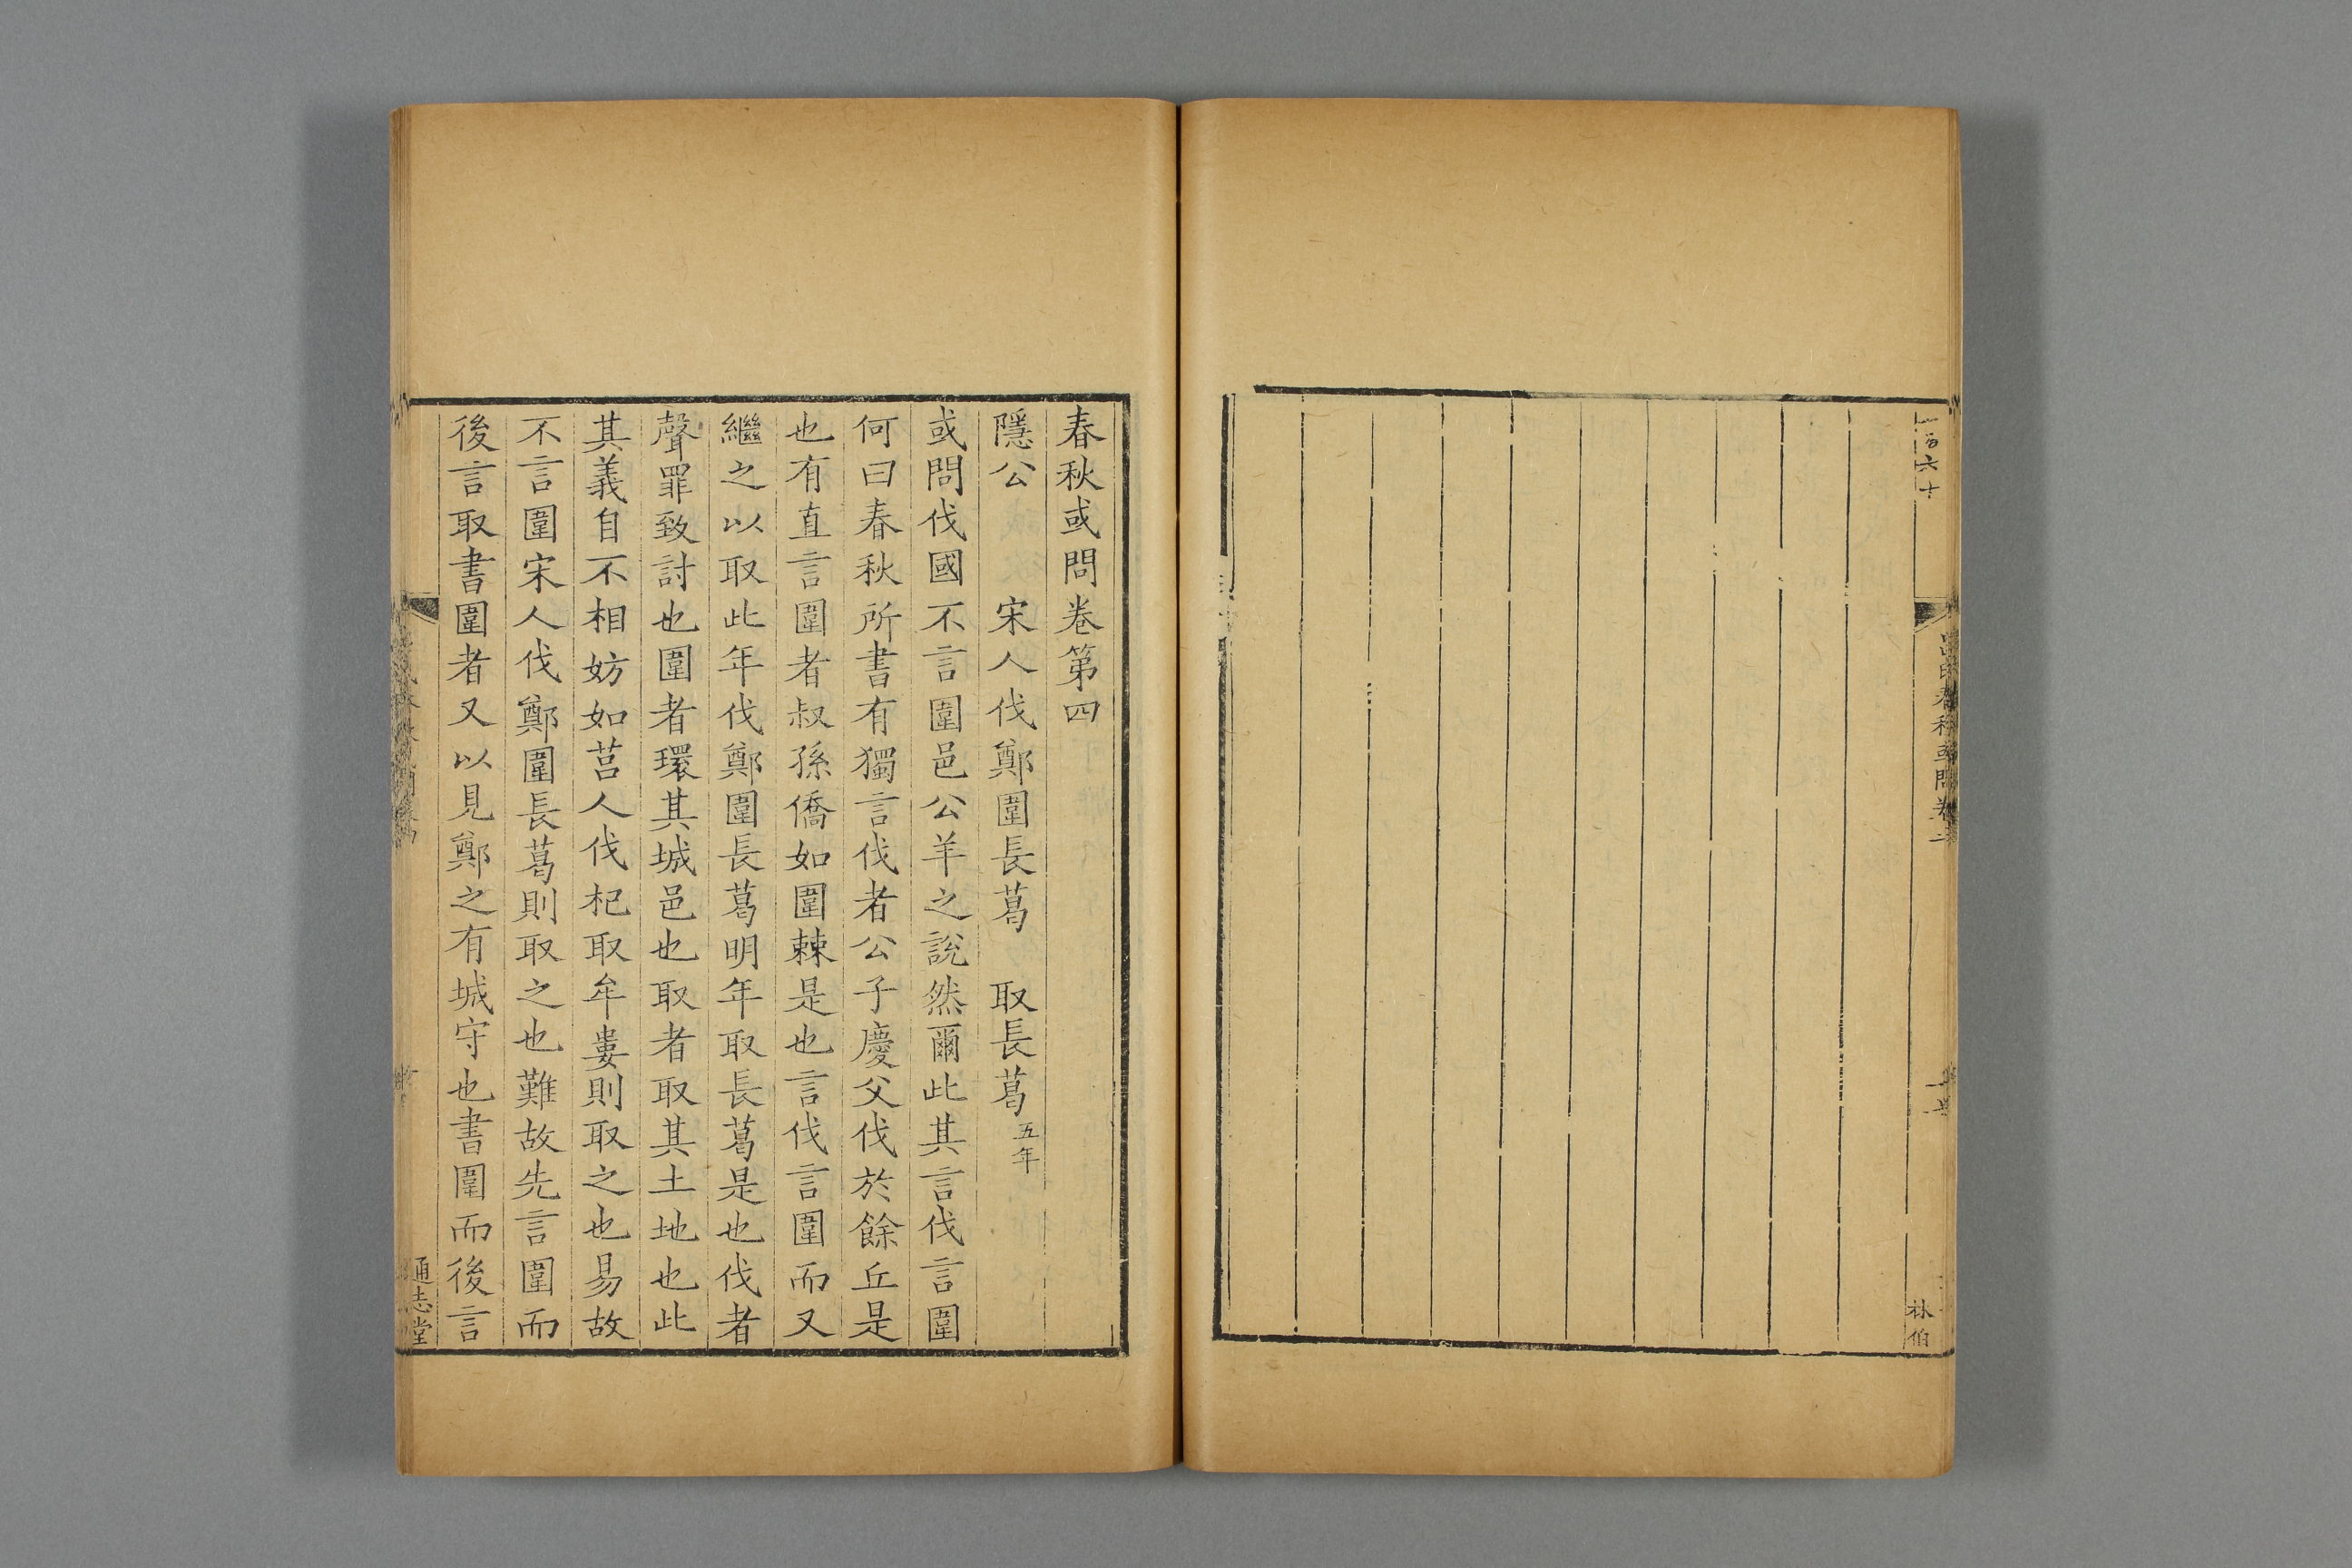 一百六十
呂氏春秋或問卷三
林伯
春秋或問卷第四
隱公　宋人伐鄭圍長葛　取長葛五年
或問伐國不言圍邑公羊之說然爾此其言伐言圍
何曰春秋所書有獨言伐者公子慶父伐於餘丘是
也有直言圍者叔孫僑如圍棘是也言伐言圍而又
繼之以取此年伐鄭圍長葛明年取長葛是也伐者
聲罪致討也圍者環其城邑也取者取其土地也此
其義自不相妨如莒人伐杞取牟婁則取之也易故
不言圍宋人伐鄭圍長葛則取之也難故先言圍而
後言取書圍者又以見鄭之有城守也書圍而後言
通志堂